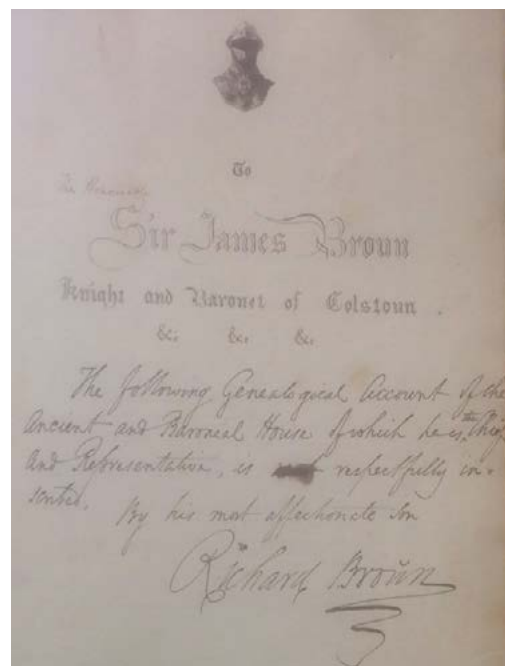 To
The Honourable
Sir James Broun
Knight and Baronet of Colstoun.
&c. &c. &c.
The following Genealogical Account of the
Ancient and Baroneal House of which he is the Chief
And Representative, is respectfully in-
scribed.
By his most affectionate Son
Richard Broun